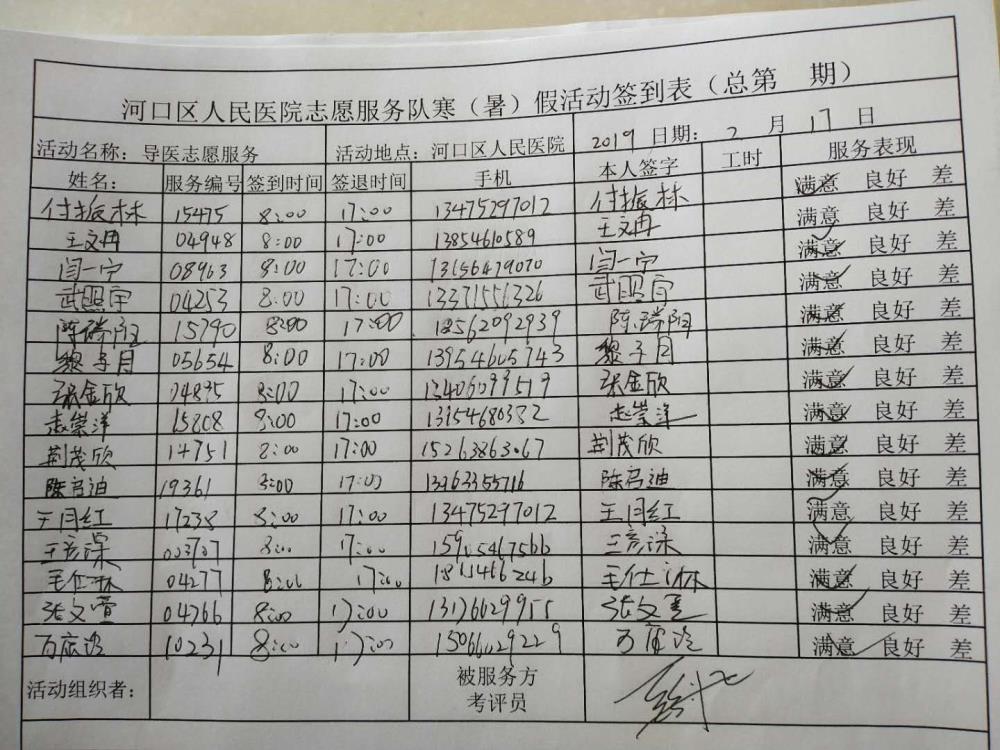 河口区人民医院志愿服务队寒（暑）假活动签到表（总第 期）
活动名称：导医志愿服务 活动地点：河口区人民医院 2019 日期：2 月 17 日
姓名： 服务编号 签到时间 签退时间 手机 本人签字 工时 服务表现
付振林 15475 8:00 17:00 13475297012 付振林 满意 良好 差
王文冉 04948 8:00 17:00 13854610589 王文冉 满意 良好 差
闫一宁 08963 8:00 17:00 闫一宁 满意 良好 差
武照宇 04253 8:00 17:00 13371556326 武照宇 满意 良好 差
陈瑞阳 15790 8:00 17:00 18562092939 陈瑞阳 满意 良好 差
黎子月 05654 8:00 17:00 13954605743 黎子月 满意 良好 差
张金欣 04895 8:00 17:00 13406099519 张金欣 满意 良好 差
赵崇洋 15808 8:00 17:00 13154680382 赵崇洋 满意 良好 差
荆茂欣 14751 8:00 17:00 15263863067 荆茂欣 满意 良好 差
陈启迪 19361 8:00 17:00 陈启迪 满意 良好 差
王闫红 17238 8:00 17:00 13475297012 王闫红 满意 良好 差
8:00 17:00 满意 良好 差
04277 8:00 17:00 满意 良好 差
张文萱 04766 8:00 17:00 张文萱 满意 良好 差
10231 8:00 17:00 15066029229 满意 良好 差
满意 良好 差
活动组织者： 被服务方
考评员